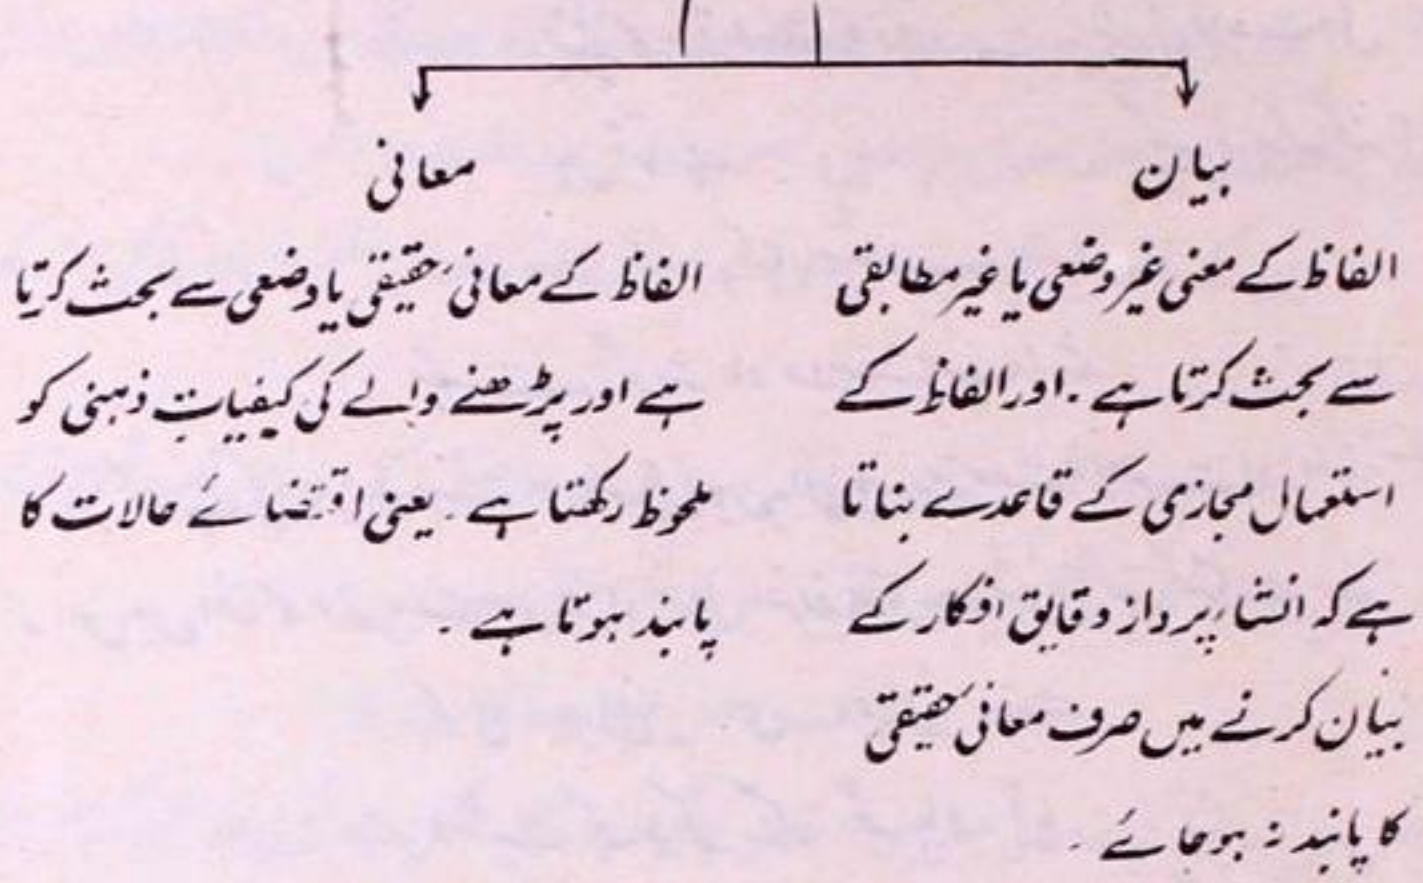 بیان
الفاظ کے معنی غیر وضعی یا غیر مطابقی
سے بحث کرتا ہے۔ اور الفاظ کے
استعمال مجازی کے قاعدے بناتا
ہے کہ انشاء پرداز دقایق افکار کے
بیان کرنے میں صرف معانیِ حقیقی
کا پابند نہ ہو جائے۔
معانی
الفاظ کے معانیِ حقیقی یا وضعی سے بحث کرتا
ہے اور پڑھنے والے کی کیفیاتِ ذہنی کو
ملحوظ رکھتا ہے۔ یعنی اقتضائے حالات کا
پابند ہوتا ہے۔